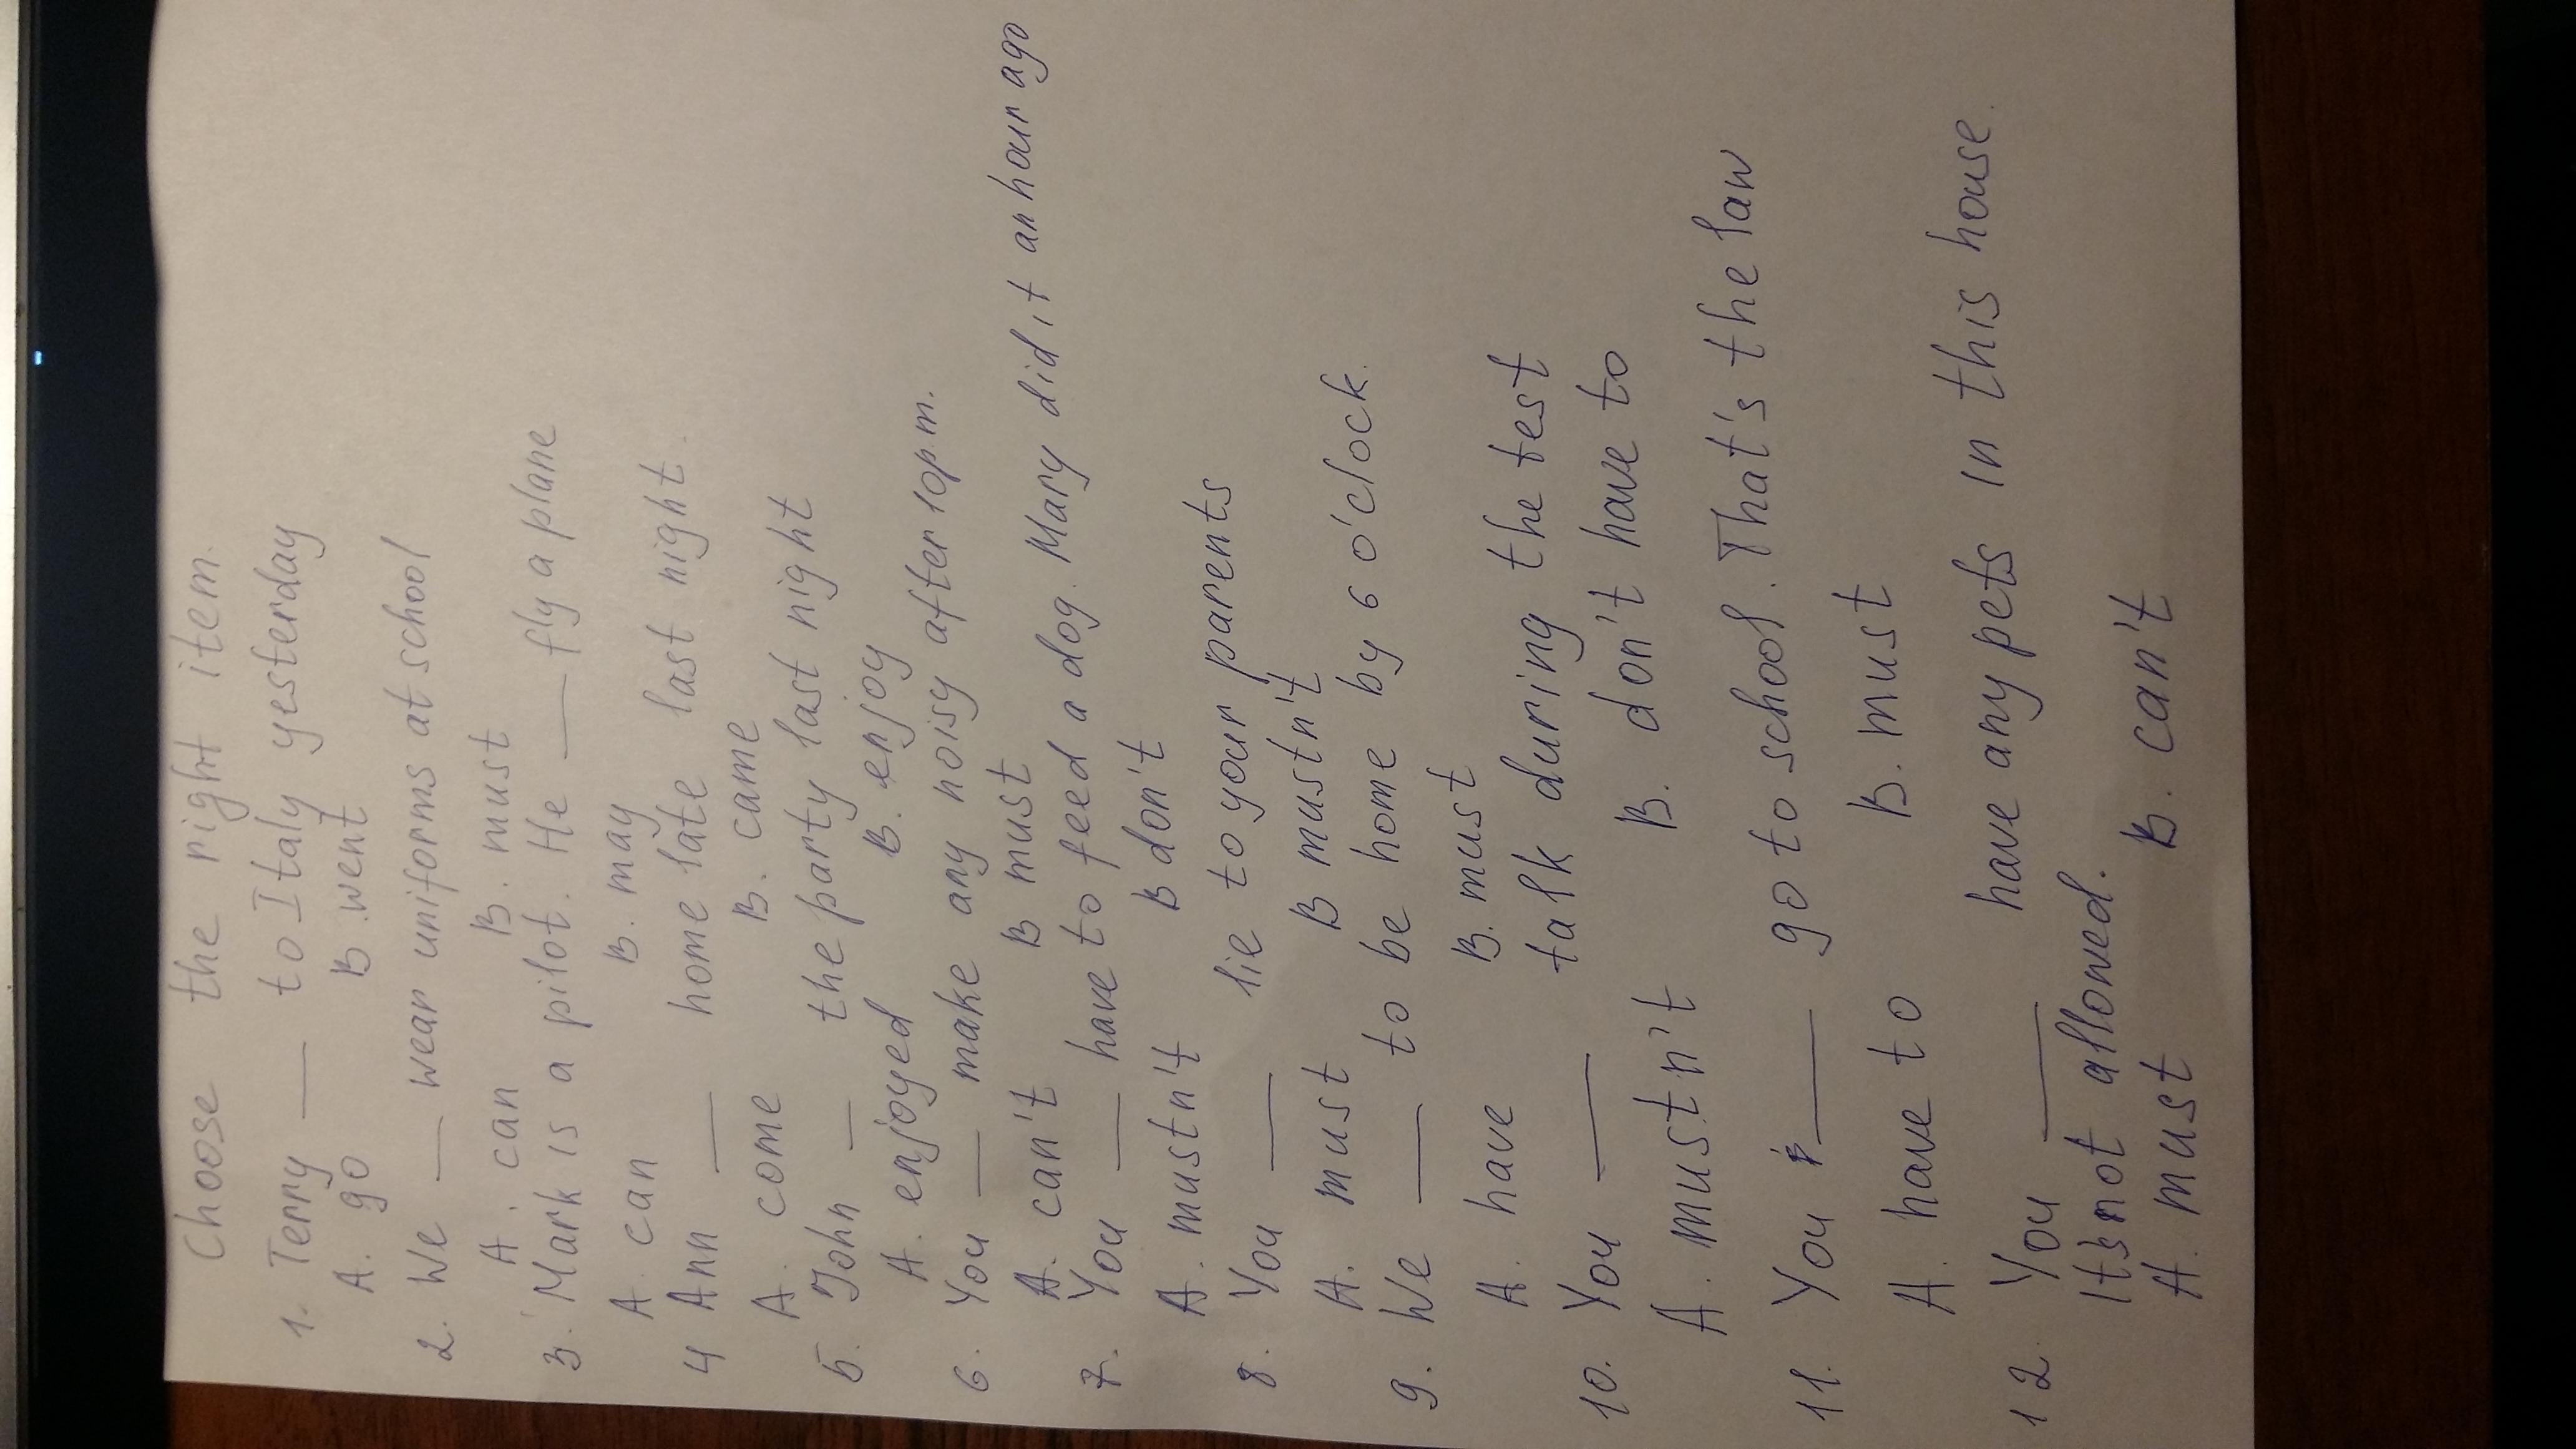 Choose the right item.
1. Terry ___ to Italy yesterday
A. go B. went
2. We ___ wear uniforms at school
A. can B. must
3. Mark is a pilot. He ___ fly a plane
A can B. may
4 Ann ___ home late last night.
A. come B. came
5. John ___ the party last night
A. enjoyed B. enjoy
6. You ___ make any noisy after 10 pm.
A. can't B must
7. You ___ have to feed a dog. Mary did it an hour ago
A. mustn't B don't
8 You ___ lie to your parents
A. must B mustn't
9. We ___ to be home by 6 o'clock.
A. have B. must
10. You ___ talk during the test
A. mustn't B. don't have to
11. You ___ go to school. That's the law
A. have to B. must
12. You ___ have any pets in this house.
It's not allowed.
A. must B. can't